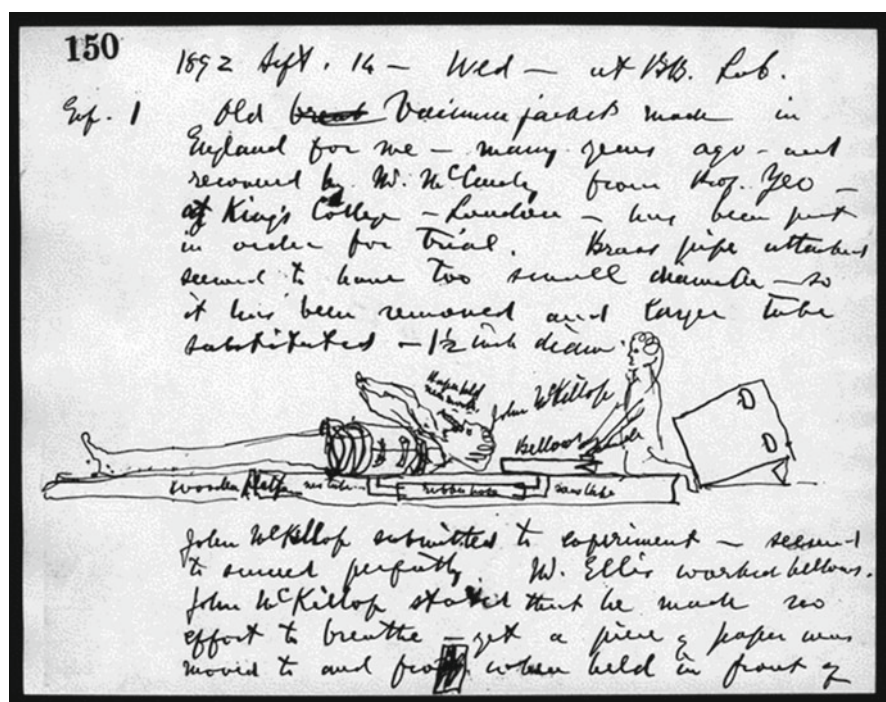 150
1892 Sept. 14 — Wed — at BB. Lab.
Exp. 1 Old breat Vacuum jacket made in
England for me — many years ago — and
recovered by Mr. McCurdy from Prof. Yeo —
of King's College — London — has been put
in order for trial. Brass pipe attached
seemed to have too small diameter — so
it has been removed and larger tube
substituted — 1½ inch diam.
Paper held
near mouth
John McKillop
Bellows
wooden
rubber hose
John McKillop submitted to experiment — seemed
to succeed perfectly. W. Ellis worked bellows.
John McKillop stated that he made no
effort to breathe — yet a piece of paper was
moved to and fro when held in front of